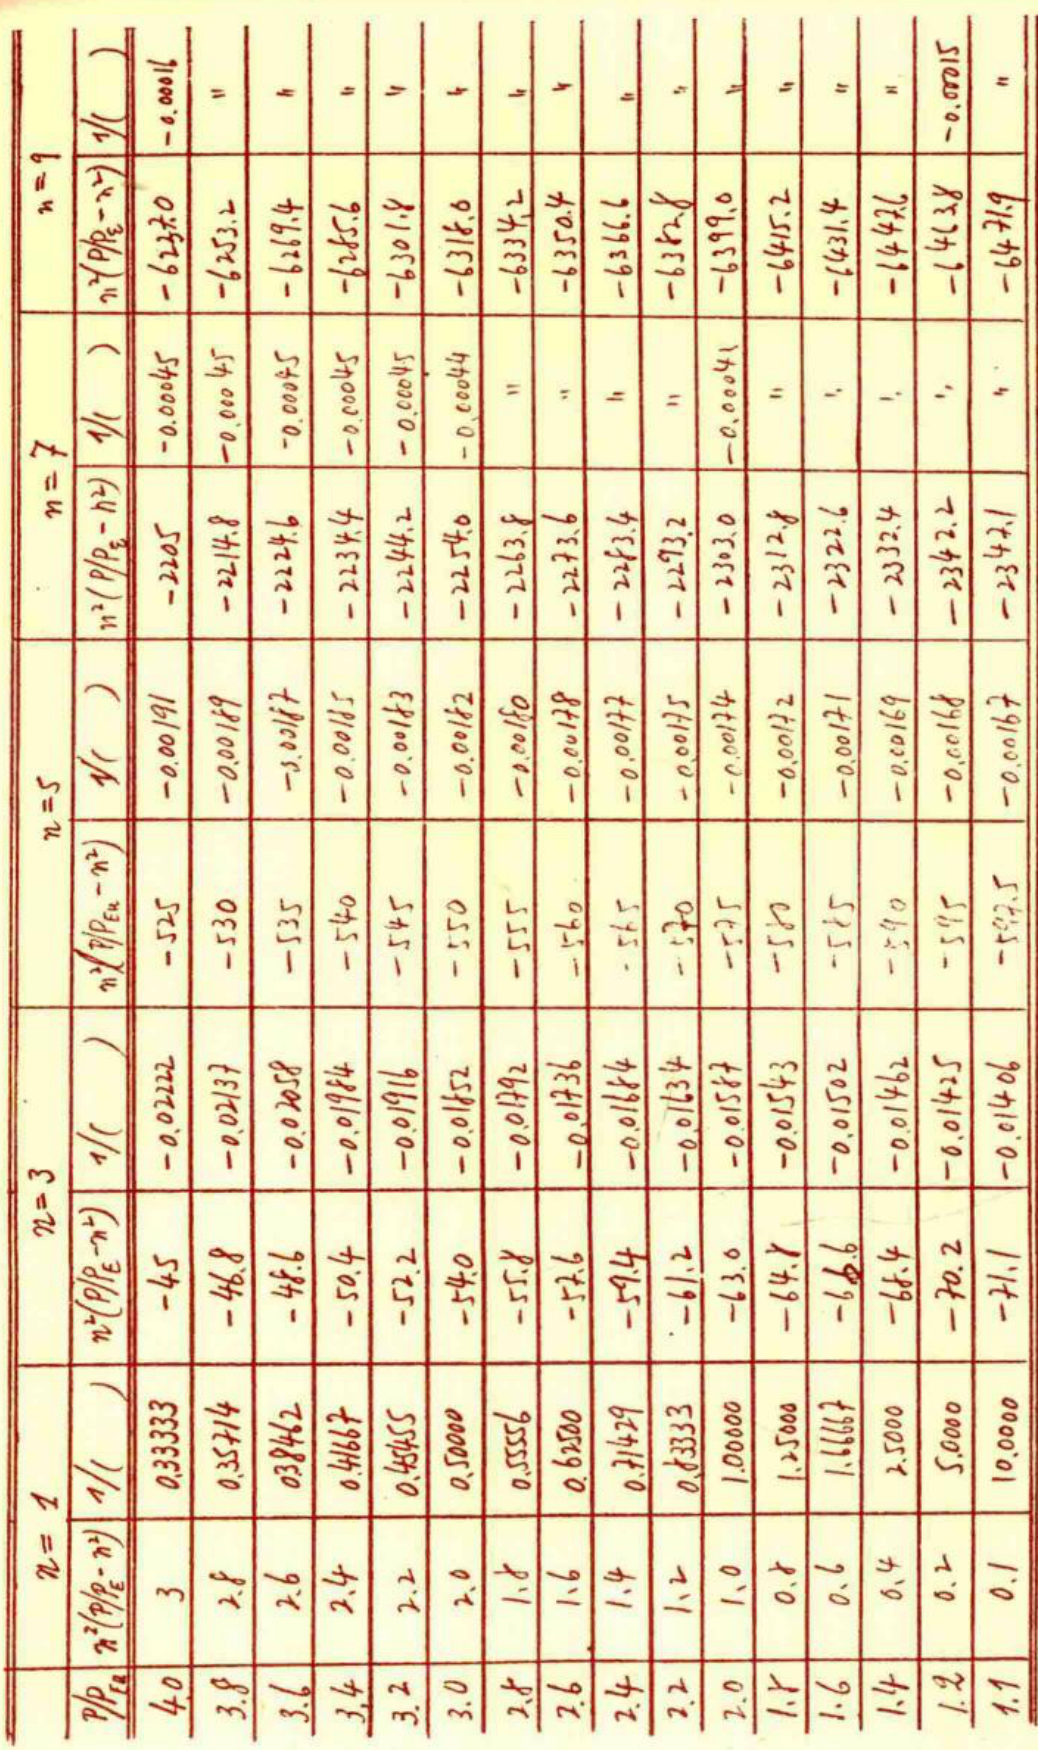 n = 1 n = 3 n = 5 n = 7 n = 9
P/P_Ea n²(P/P_E - n²) 1/( ) n²(P/P_E - n²) 1/( ) n²(P/P_Ea - n²) 1/( ) n²(P/P_E - n²) 1/( ) n²(P/P_E - n²) 1/( )
4.0 3 0.33333 -45 -0.02222 -525 -0.00191 -2205 -0.00045 -6237.0 -0.00016
3.8 2.8 0.35714 -46.8 -0.02137 -530 -0.00189 -2214.8 -0.00045 -6253.2 "
3.6 2.6 0.38462 -48.6 -0.02058 -535 -0.00187 -2224.6 -0.00045 -6269.4 "
3.4 2.4 0.41667 -50.4 -0.01984 -540 -0.00185 -2234.4 -0.00045 -6285.6 "
3.2 2.2 0.45455 -52.2 -0.01916 -545 -0.00183 -2244.2 -0.00045 -6301.8 "
3.0 2.0 0.50000 -54.0 -0.01852 -550 -0.00182 -2254.0 -0.00044 -6318.0 "
2.8 1.8 0.5556 -55.8 -0.01792 -555 -0.00180 -2263.8 " -6334.2 "
2.6 1.6 0.62500 -57.6 -0.01736 -560 -0.00178 -2273.6 " -6350.4 "
2.4 1.4 0.71429 -59.4 -0.01684 -565 -0.00177 -2283.4 " -6366.6 "
2.2 1.2 0.83333 -61.2 -0.01634 -570 -0.00175 -2293.2 " -6382.8 "
2.0 1.0 1.00000 -63.0 -0.01587 -575 -0.00174 -2303.0 -0.00041 -6399.0 "
1.8 0.8 1.25000 -64.8 -0.01543 -580 -0.00172 -2312.8 " -6415.2 "
1.6 0.6 1.66667 -66.6 -0.01502 -585 -0.00171 -2322.6 " -6431.4 "
1.4 0.4 2.5000 -68.4 -0.01462 -590 -0.00169 -2332.4 " -6447.6 "
1.2 0.2 5.0000 -70.2 -0.01425 -595 -0.00168 -2342.2 " -6463.8 -0.00015
1.1 0.1 10.0000 -71.1 -0.01406 -597.5 -0.00167 -2347.1 " -6471.9 "